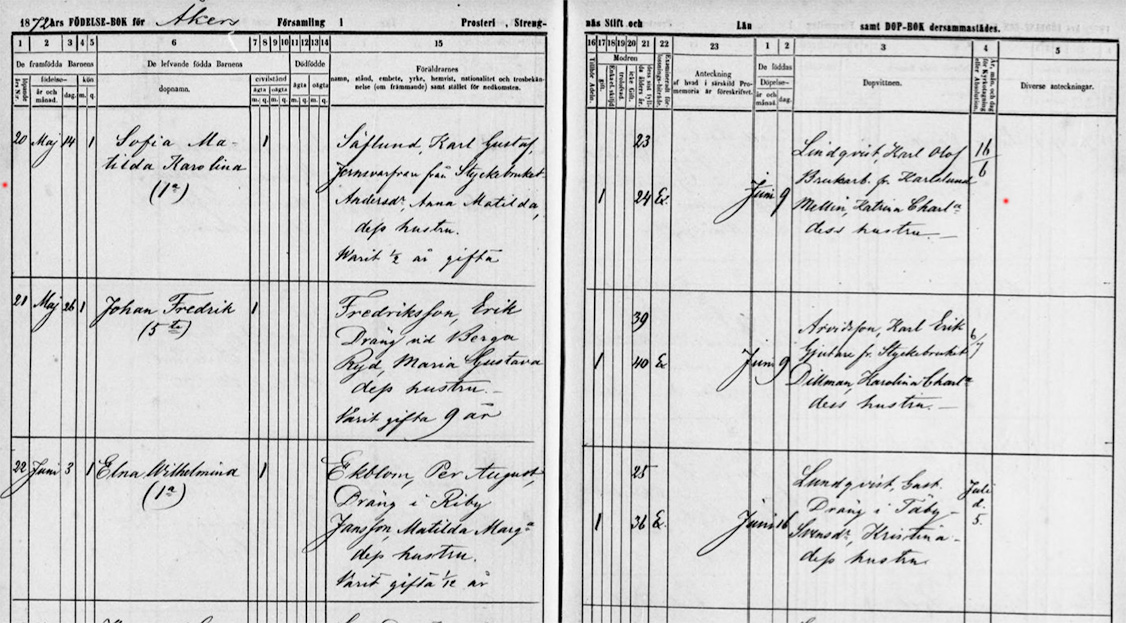 1872 Års FÖDELSE-BOK för Åkers Församling i Prosteri, Streng-
näs Stift och Län samt DOP-BOK dersammastädes.
1 2 3 4 5 6 7 8 9 10 11 12 13 14 15
16 17 18 19 20 21 22 23 1 2 3 4 5
De framfödda Barnens
De lefvande födda Barnens
Dödfödde
Föräldrarnes
namn, stånd, embete, yrke, hemvist, nationalitet och trosbekän-
nelse (om främmande) samt stället för nedkomsten.
födelse-
kön
dopnamn.
civilstånd
äkta oäkta äkta oäkta
år och månad. dag. m. q.
m. q. m. q. m. q. m. q.
Modren
Anteckning
af hvad i särskild Pro-
memoria är föreskrifvet.
De föddas
Döpelse-
år och månad. dag.
Dopvittnen.
Diverse anteckningar.
20 Maj 14 1 Sofia Ma-
tilda Karolina
(1a)
1
Säflund, Karl Gustaf,
Jernsvarfvare från Styckebruket
Andersdr, Anna Matilda,
dess hustru.
Varit 1/2 år gifta
23
1 24 Ex.
Juni 9
Lindqvist, Karl Olof
Brukarb. fr. Karlslund
Mellin, Katrina Charla
dess hustru.
16/6
21 Maj 26 1 Johan Fredrik
(5te)
1
Fredriksson, Erik
Dräng vid Berga
Ryd, Maria Gustava
dess hustru.
Varit gifta 9 år
39
1 40 Ex
Juni 9
Arvidsson, Karl Erik
Gjutare fr. Styckebruket
Dillman, Karolina Charla
dess hustru.
6/7
22 Juni 3 1 Elna Wilhelmina
(1a)
1
Ekblom, Per August,
Dräng i Riby
Jansson, Matilda Marga
dess hustru.
Varit gifta 1/2 år
25
1 36 Ex.
Juni 16
Lundqvist, Gust.
Dräng i Täby
Svensdr, Kristina
dess hustru
Juli
d.
5.